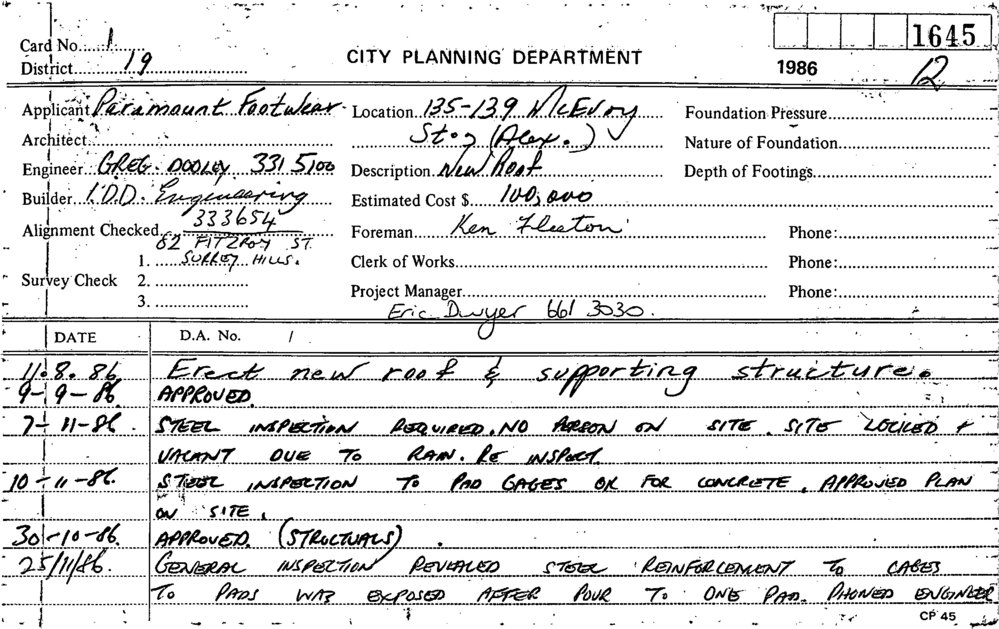 Card No. 1
1645
CITY PLANNING DEPARTMENT
1986 12
District 19
Applicant Paramount Footwear
Location 135-139 McEvoy
Foundation Pressure
Architect
St. (Alex.)
Nature of Foundation
Engineer GREG. DOOLEY 331 5100
Description New Roof
Depth of Footings
Builder I.D.D. Engineering
Estimated Cost $ 100,000
333654
Alignment Checked
Foreman Ken
Phone:
82 FITZROY ST.
1. SURREY HILLS.
Clerk of Works
Phone:
Survey Check 2.
Project Manager
Phone:
3.
Eric Dwyer 661 3030.
DATE D.A. No. /
11.8.86 Erect new roof & supporting structure.
9-9-86 APPROVED.
7-11-86. STEEL INSPECTION REQUIRED. NO PERSON ON SITE. SITE LOCKED +
VACANT DUE TO RAIN. RE INSPECT.
10-11-86. STEEL INSPECTION TO PAD CAGES OK FOR CONCRETE. APPROVED PLAN
ON SITE.
30-10-86. APPROVED. (STRUCTUALS).
25/11/86. GENERAL INSPECTION REVEALED STEEL REINFORCEMENT TO CAGES
TO PADS WAS EXPOSED AFTER POUR TO ONE PAD. PHONED ENGINEER
CP 45